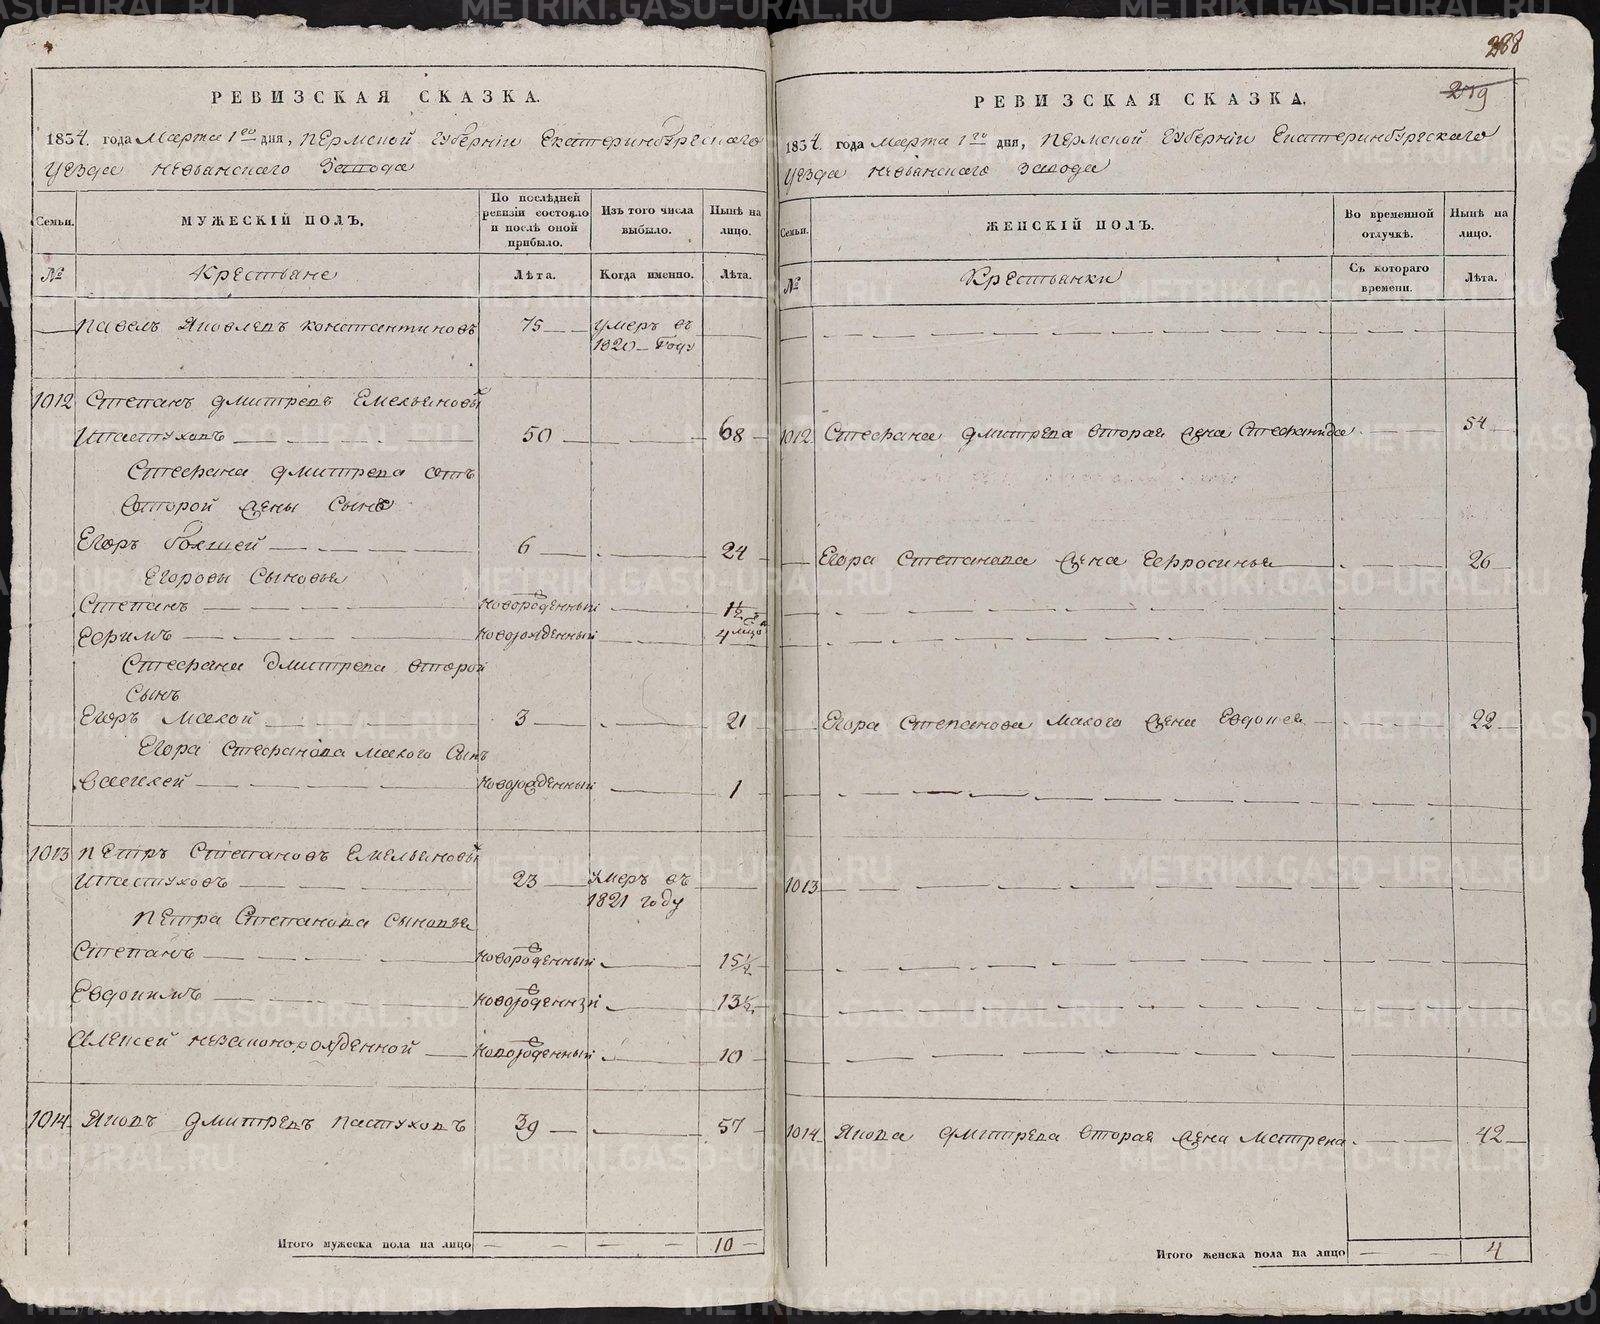 288
219
РЕВИЗСКАЯ СКАЗКА.
1834. года Марта 1го дня, Пермской Губернiи Екатеринбургскаго
уезда Невьянскаго Завода
Семьи.
МУЖЕСКIЙ ПОЛЪ.
По послѣдней ревизiи состояло и послѣ оной прибыло.
Изъ того числа выбыло.
Нынѣ на лицо.
№
Крестьяне
Лѣта.
Когда именно.
Лѣта.
Павелъ Яковлевъ Константиновъ 75 умеръ въ
1820 году
1012 Степанъ Дмитревъ Емельяновъ
Пастуховъ 50 68
Стефана Дмитрева отъ
второй жены сынъ
Егоръ большей 6 24
Егоровы сыновья
Степанъ новорожденный 1½
Ефимъ новорожденный 4
Стефана Дмитрева второй
сынъ
Егоръ малой 3 21
Егора Стефанова малого сынъ
Василей новорожденный 1
1013 Петръ Степановъ Емельяновъ
Пастуховъ 23 умеръ въ
1821 году
Петра Степанова сыновья
Степанъ новорожденный 15½
Евдокимъ новорожденный 13½
Алексей незаконорожденной новорожденный 10
1014 Яковъ Дмитревъ Пастуховъ 39 57
Итого мужеска пола на лицо 10
РЕВИЗСКАЯ СКАЗКА.
1834. года Марта 1го дня, Пермской Губернiи Екатеринбургскаго
уезда Невьянскаго завода
Семьи.
ЖЕНСКIЙ ПОЛЪ.
Во временной отлучкѣ.
Нынѣ на лицо.
№
Крестьянки
Съ котораго времени.
Лѣта.
1012 Стефана Дмитрева вторая жена Стефанида 54
Егора Степанова жена Ефросинья 26
Егора Степанова малого жена Евдокея 22
1013
1014 Якова Дмитрева вторая жена Матрена 42
Итого женска пола на лицо 4